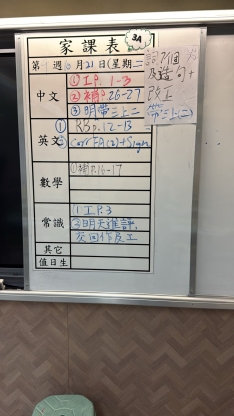 家課表
3A
第1週 月21日(星期二
中文
① 工P. 1-3
② 補P.26-27
③ 明帶三上二
詞7個
及造句+
改工
帶三上(二)
英文
① RB p.12-13
② Corr FA(2)+Sign
數學
① 補P.16-17
常識
① 工P.3
② 明天進評,
交回作及工
其它
值日生